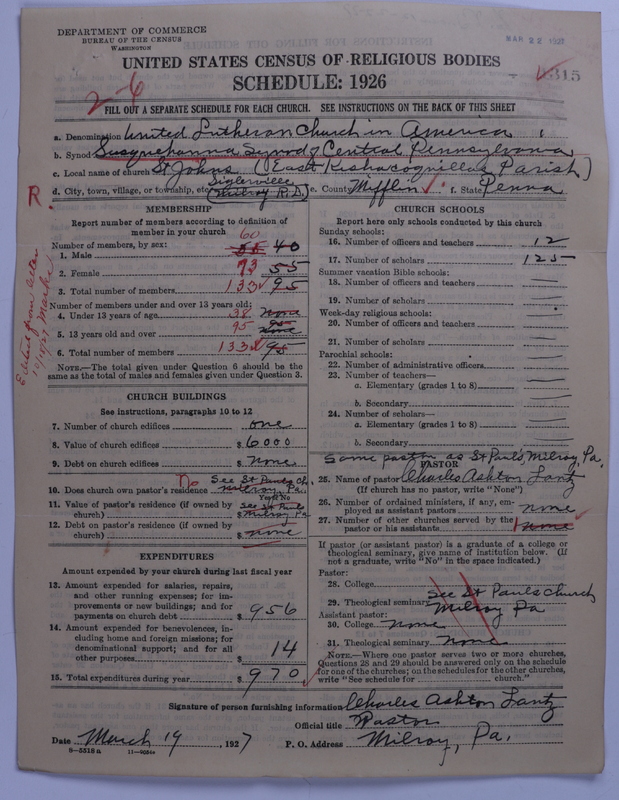 DEPARTMENT OF COMMERCE
BUREAU OF THE CENSUS
WASHINGTON
MAR 22 1927
UNITED STATES CENSUS OF RELIGIOUS BODIES
SCHEDULE: 1926
2-6
FILL OUT A SEPARATE SCHEDULE FOR EACH CHURCH. SEE INSTRUCTIONS ON THE BACK OF THIS SHEET
a. Denomination United Lutheran Church in America
b. Synod Susquehanna Synod of Central Pennsylvania
c. Local name of church St Johns (East Kishacoquillas Parish)
Siglerville
d. City, town, village, or township, etc. (Milroy R.D.) e. County Mifflin f. State Penna
R.
MEMBERSHIP
Report number of members according to definition of member in your church
Number of members, by sex:
1. Male 60 40
2. Female 73 55
3. Total number of members 133 95
Number of members under and over 13 years old:
4. Under 13 years of age 38 none
5. 13 years old and over 95 none
6. Total number of members 133 95
NOTE.—The total given under Question 6 should be the same as the total of males and females given under Question 3.
CHURCH BUILDINGS
See instructions, paragraphs 10 to 12
7. Number of church edifices one
8. Value of church edifices $ 6000
9. Debt on church edifices $ none
10. Does church own pastor's residence no See St Pauls Ch. Milroy, Pa.
Yes or No
11. Value of pastor's residence (if owned by church) $ See St Pauls Milroy Pa
12. Debt on pastor's residence (if owned by church) $ none
EXPENDITURES
Amount expended by your church during last fiscal year
13. Amount expended for salaries, repairs, and other running expenses; for improvements or new buildings; and for payments on church debt $ 956
14. Amount expended for benevolences, including home and foreign missions; for denominational support; and for all other purposes $ 14
15. Total expenditures during year $ 970
CHURCH SCHOOLS
Report here only schools conducted by this church
Sunday schools:
16. Number of officers and teachers 12
17. Number of scholars 125
Summer vacation Bible schools:
18. Number of officers and teachers
19. Number of scholars
Week-day religious schools:
20. Number of officers and teachers
21. Number of scholars
Parochial schools:
22. Number of administrative officers
23. Number of teachers—
a. Elementary (grades 1 to 8)
b. Secondary
24. Number of scholars—
a. Elementary (grades 1 to 8)
b. Secondary
Same pastor as St Pauls, Milroy, Pa.
PASTOR
25. Name of pastor Charles Ashton Lantz
(If church has no pastor, write "None")
26. Number of ordained ministers, if any, employed as assistant pastors none
27. Number of other churches served by the pastor or his assistants none
If pastor (or assistant pastor) is a graduate of a college or theological seminary, give name of institution below. (If not a graduate, write "No" in the space indicated.)
Pastor:
28. College
29. Theological seminary See St Pauls Church Milroy Pa
Assistant pastor:
30. College none
31. Theological seminary none
NOTE.—Where one pastor serves two or more churches, Questions 28 and 29 should be answered only on the schedule for one of the churches; on the schedules for the other churches, write "See schedule for church."
Signature of person furnishing information Charles Ashton Lantz
Official title Pastor
Date March 19, 1927 P. O. Address Milroy, Pa.
8-5518 a